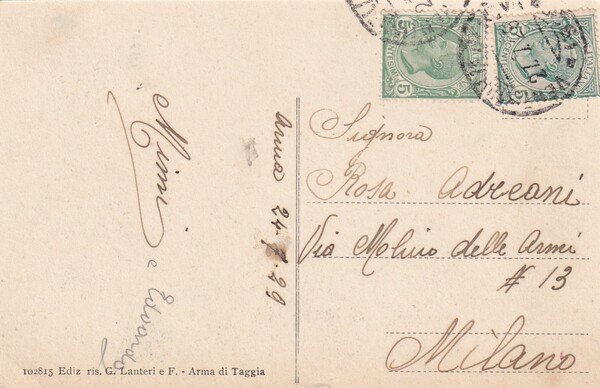 Mimi
e Edvardo
Arma 24.7.29
Signora
Rosa Adreani
Via Molino delle Armi
# 13
Milano
102815 Ediz ris. G. Lanteri e F. - Arma di Taggia
5 5